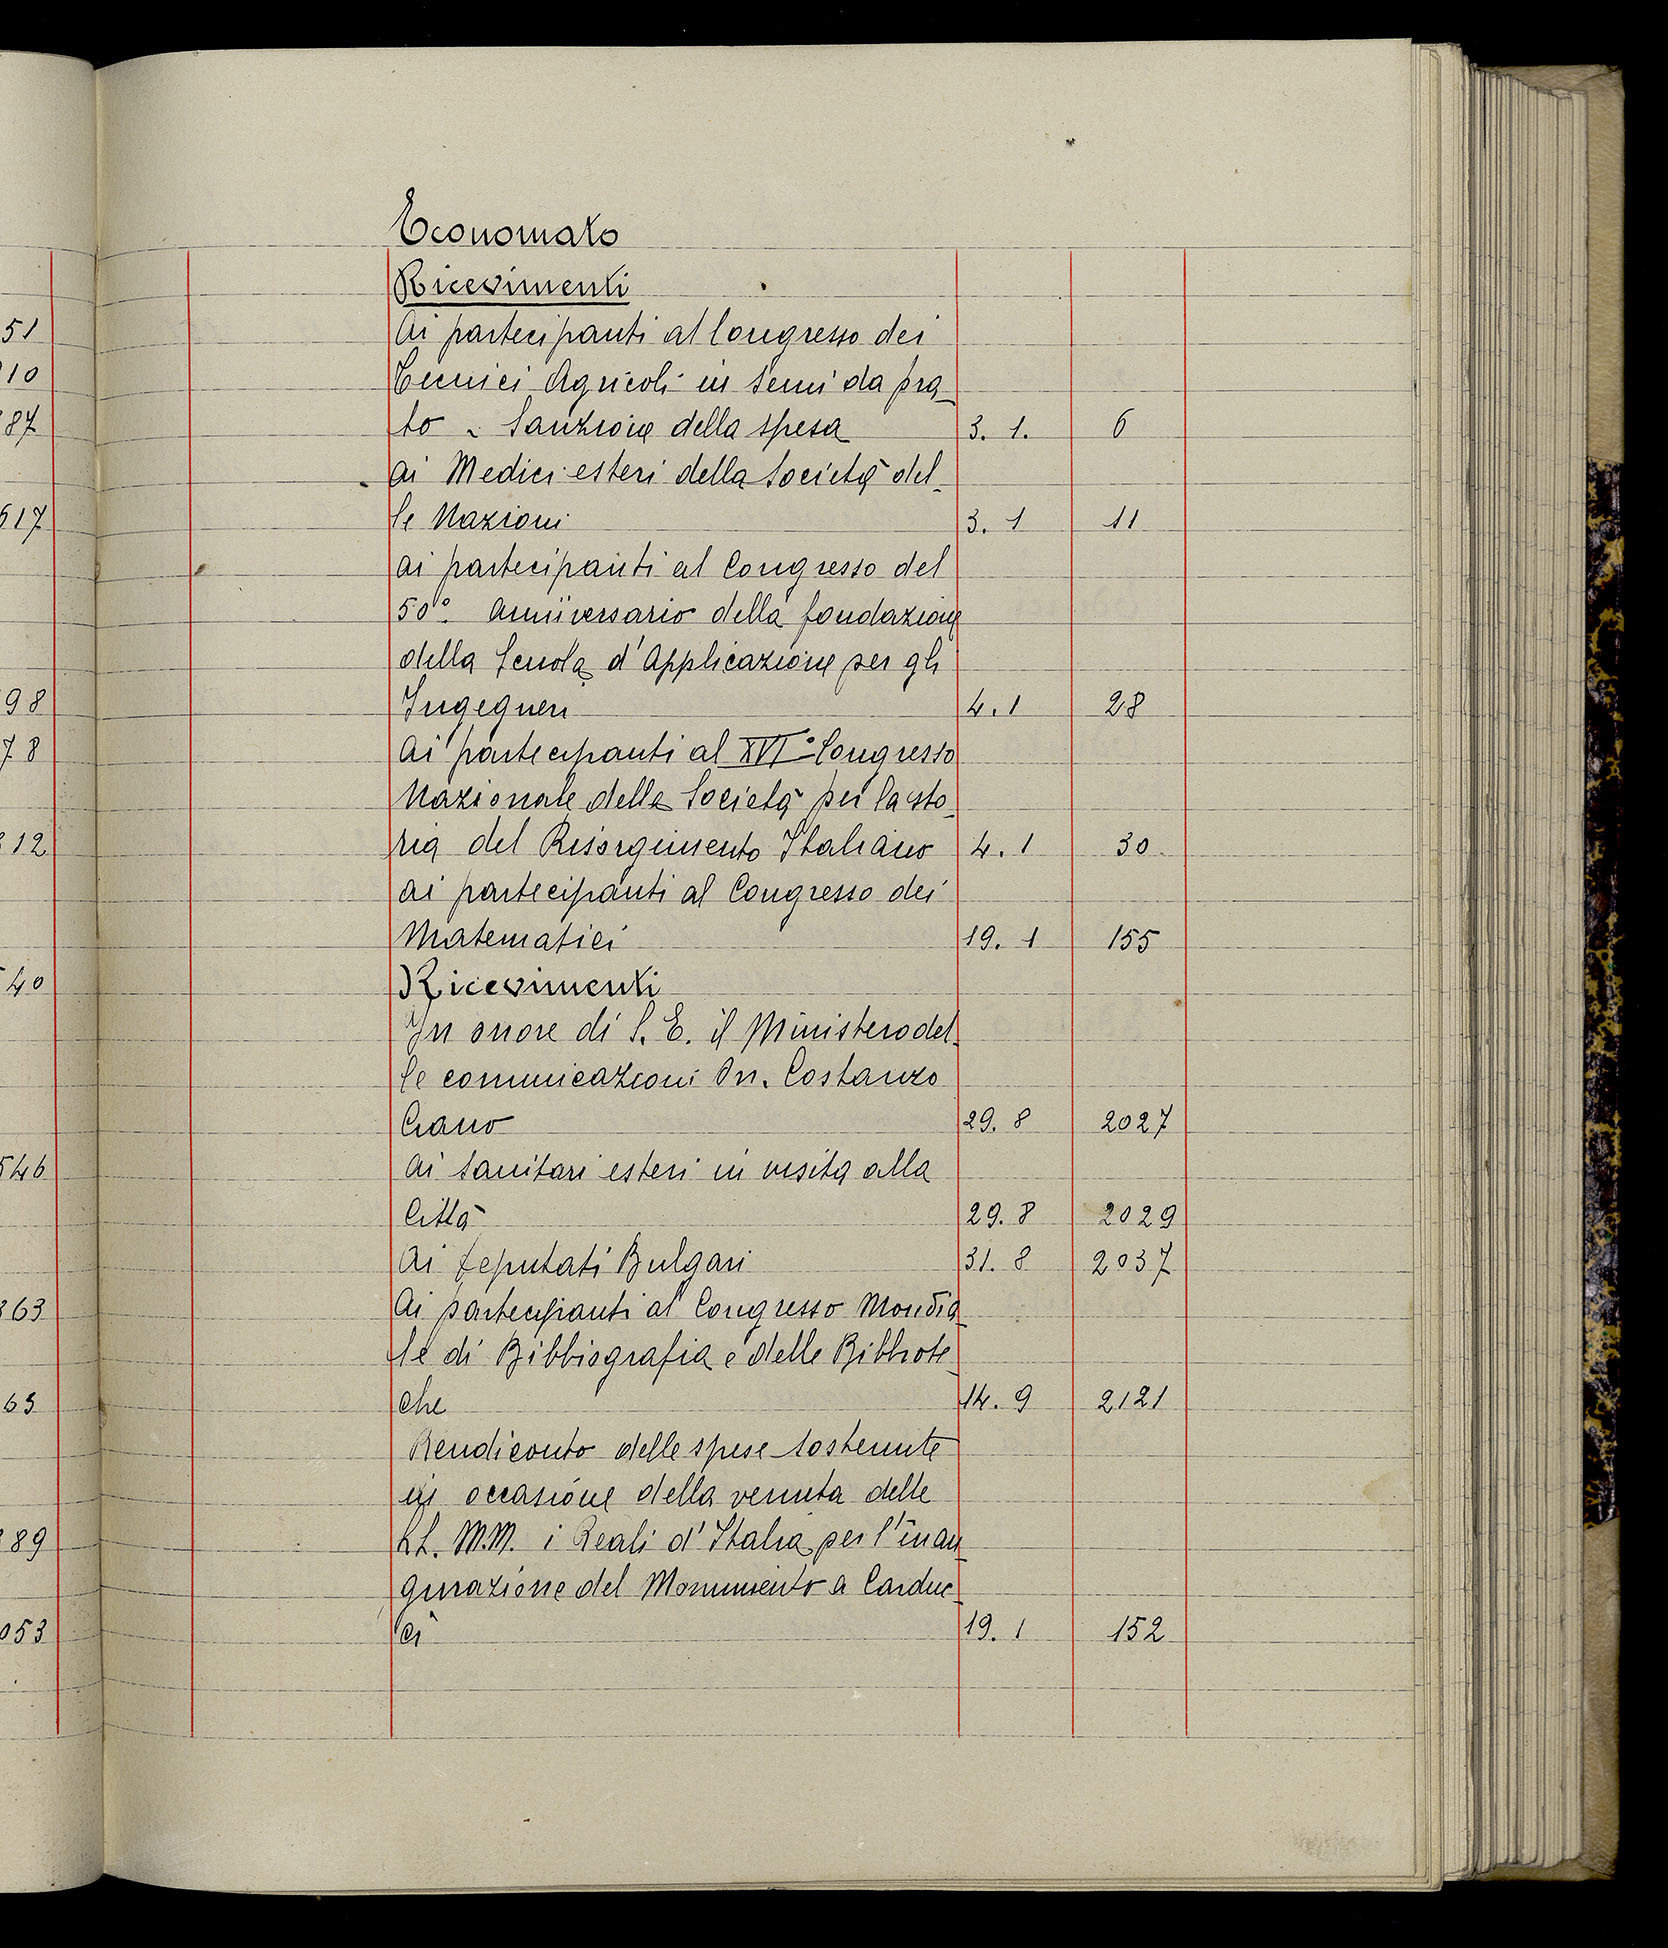 Economato
Ricevimenti
Ai partecipanti al Congresso dei
Tecnici Agricoli in semi da pra-
to - Sanzione della spesa 3. 1. 6
ai Medici esteri della Società del-
le Nazioni 3. 1 11
ai partecipanti al Congresso del
50°. Anniversario della fondazione
della Scuola d'Applicazione per gli
Ingegneri 4. 1 28
Ai partecipanti al XVI° Congresso
Nazionale della Società per la sto-
ria del Risorgimento Italiano 4. 1 30
ai partecipanti al Congresso dei
Matematici 19. 1 155
Ricevimenti
In onore di S. E. il Ministero del-
le comunicazioni On. Costanzo
Ciano 29. 8 2027
Ai sanitari esteri in visita alla
Città 29. 8 2029
Ai Deputati Bulgari 31. 8 2037
Ai partecipanti al Congresso Mondia-
le di Bibbiografia e delle Bibliote-
che 14. 9 2121
Rendiconto delle spese sostenute
in occasione della venuta delle
LL. M.M. i Reali d'Italia per l'inau-
gurazione del Monumento a Carduc-
ci 19. 1 152
51
10
87
617
98
78
12
40
546
63
65
89
053